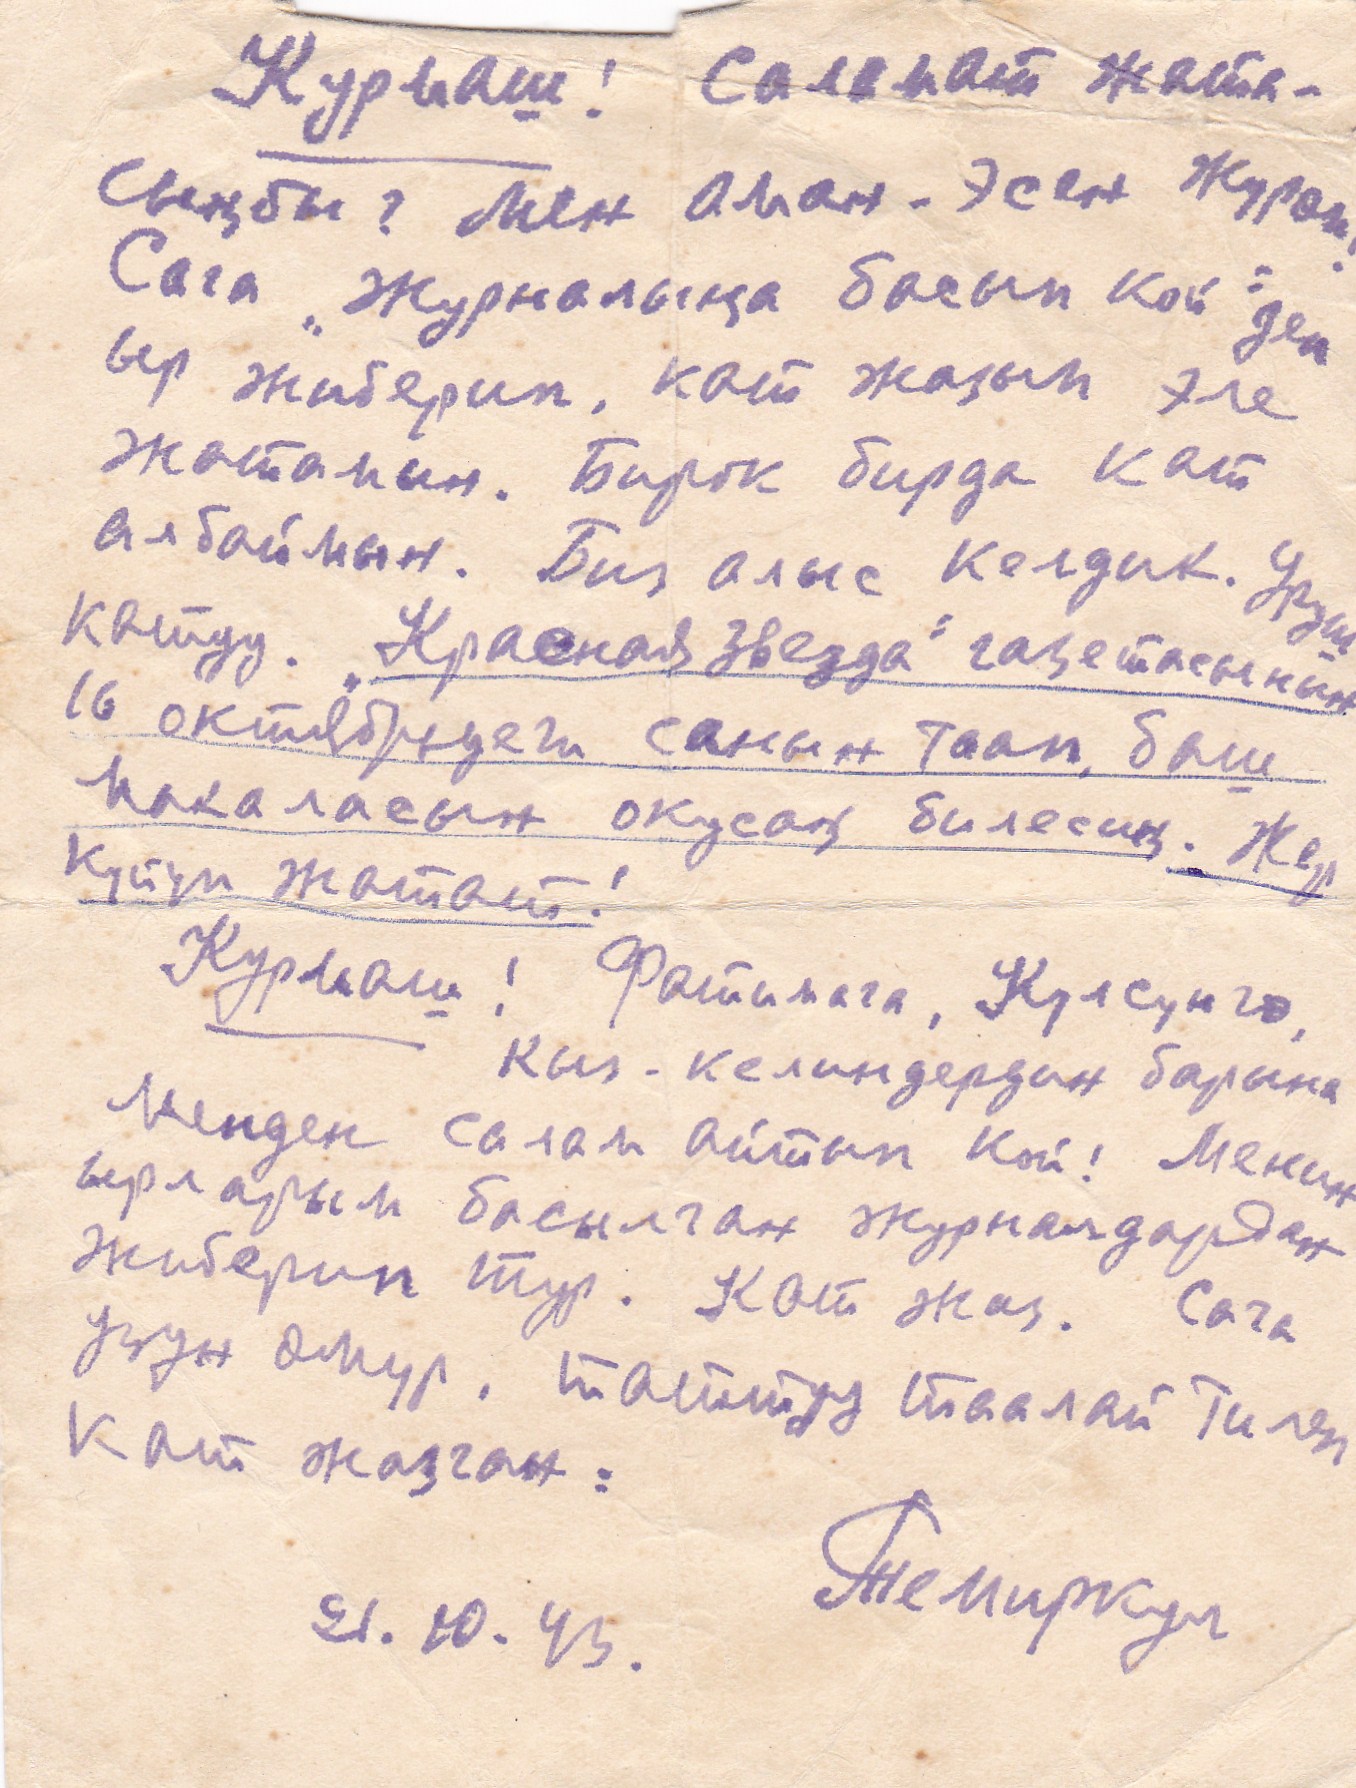 Курмаш! Саламат жата-
сыңбы? Мен аман-эсен жүрөм!
Сага „Журналыңа басып кой" деп
ыр жиберип, кат жазып эле
жатамын. Бирок бирда кат
албаймын. Биз алыс келдик. Уруш
катуу. „Красная звезда" газетасынын
16 октябрдеги санын таап, баш
макаласын окусаң билесиң. Жер
күйүп жатат!
Курмаш! Фатимага, Күлсүнгө,
кыз-келиндердин барына
менден салам айтып кой! Менин
ырларым басылган журналдардан
жиберип тур. Кат жаз. Сага
узун өмүр, таттуу таалай тилеп
кат жазган:
Темиркул
21.10.43.